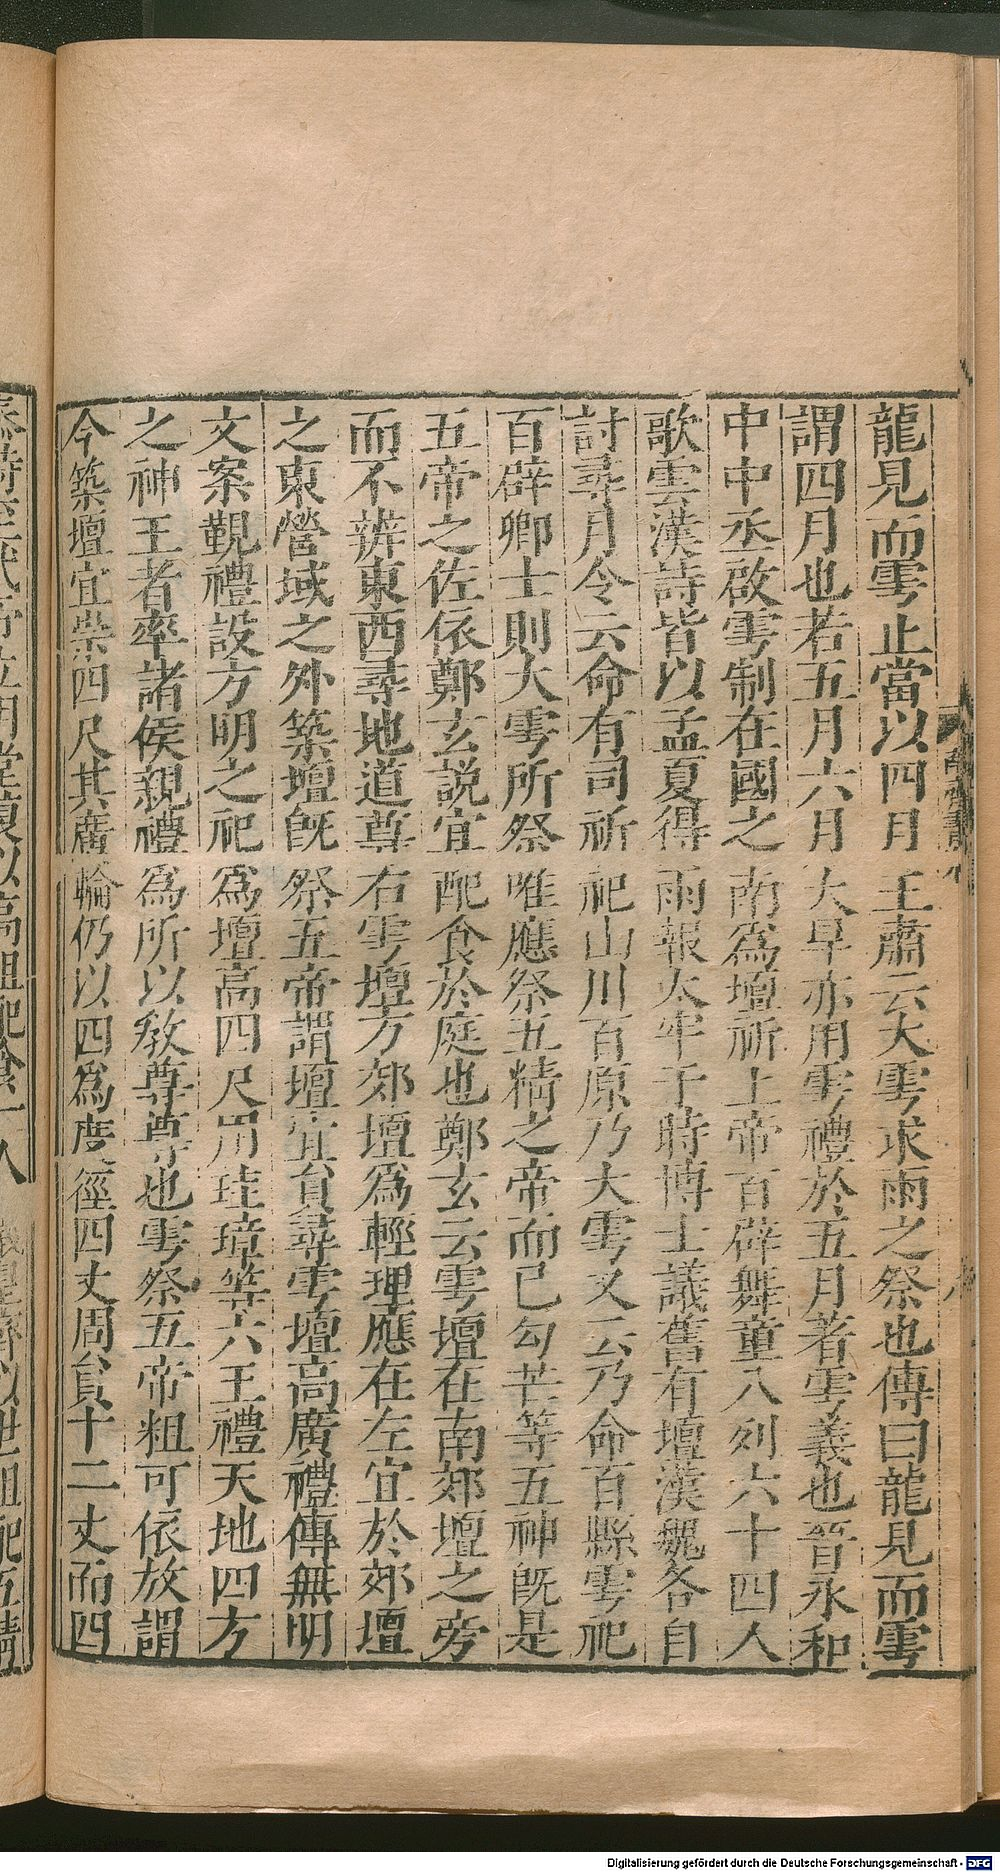 龍見而雩止當以四月王肅云大雩求雨之祭也傳曰龍見而雩
謂四月也若五月六月大旱亦用雩禮於五月著雩義也晉永和
中中丞啟雩制在國之南為壇祈上帝百辟舞童八列六十四人
歌雲漢詩皆以孟夏得雨報太牢于時博士議舊有壇漢魏各自
討尋月令云命有司祈祀山川百原乃大雩又云乃命百縣雩祀
百辟卿士則大雩所祭唯應祭五精之帝而已勾芒等五神既是
五帝之佐依鄭玄說宜配食於庭也鄭玄云雩壇在南郊壇之旁
而不辨東西尋地道尊右雩壇方郊壇為輕理應在左宜於郊壇
之東營域之外築壇既祭五帝謂壇宜貟尋雩壇高廣禮傳無明
文案覲禮設方明之祀為壇高四尺用珪璋等六玉禮天地四方
之神王者率諸侯親禮為所以敎尊尊也雩祭五帝粗可依放謂
今築壇宜崇四尺其廣輪仍以四為度徑四丈周貟十二丈而四
以高祖配
以世祖配五精
Digitalisierung gefördert durch die Deutsche Forschungsgemeinschaft - DFG